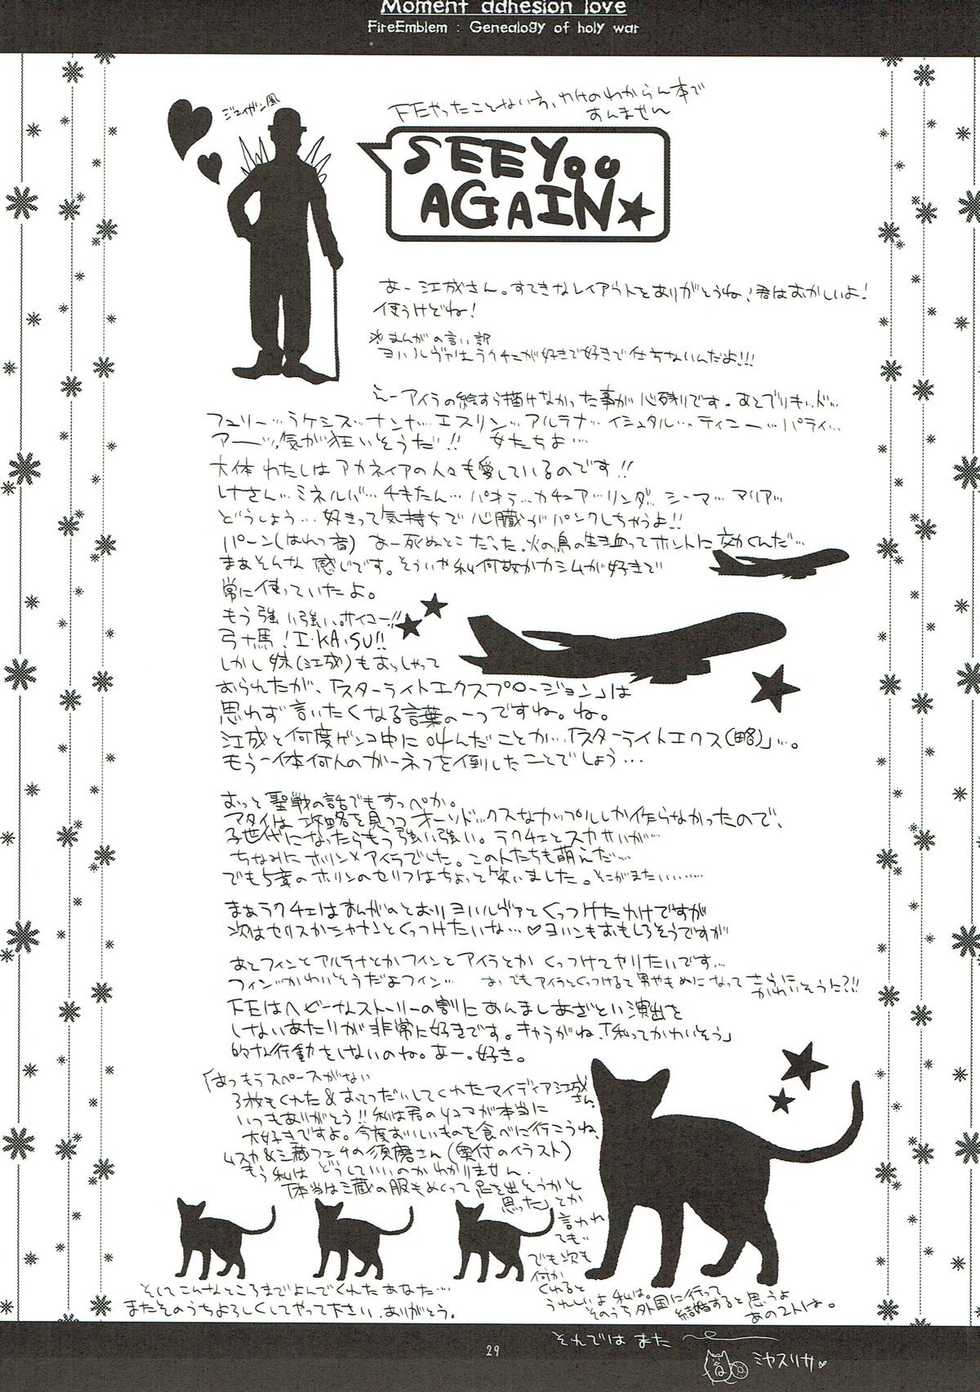 Moment adhesion love
FireEmblem : Genealogy of holy war
ジェイガン風
FEやったことない方、わけのわからん本で
あんません
SEE YOU
AGAIN★
あー江成さん。すてきなレイアウトをありがとうね!君はおかしいよ!
使うけどね!
*まんがの言い訳
ヨハルヴァはラクチェが好きで好きで仕方ないんだよ!!!
えーアイラの絵すら描けなかった事が心残りです。あとでリキッド…
フュリー…ラケシス…ナンナ…エスリン…アルテナ…イシュタル…ティニー…パティ…
アー…気が狂いそうだ!! 女たちよ…
大体わたしはアカネイアの人々も愛しているのです!!
しーさん…ミネルバ…チキたん…パオラ…カチュア…リンダ…シーマ…マリア…
どうしよう…好きって気持ちで心臓がパンクしちゃうよ!!
パーン(はれつ音) あー死ぬとこだった、火の鳥の生き血ってホントに効くんだ…
まぁそんな感じです。そういや私何故かカシムが好きで
常に使っていたよ。
もう強い強い。ホイコー!!
弓+馬!I・KA・SU!!
しかし妹(江成)もおっしゃって
おられたが、「スターライトエクスプロージョン」は
思わず言いたくなる言葉の一つですね。ね。
江成と何度ゲンコ中に叫んだことか…「スターライトエクス(略)」…。
もう一体何人のガーネフを倒したことでしょう…
おっと聖戦の話でもすっぺか。
アタイは攻略を見つつオーソドックスなカップルしか作らなかったので、
子世代になったらもう強い強い。ラクチェとスカサハが…
ちなみにホリン×アイラでした。この人たちも萌えだ…
でも5章のホリンのセリフはちょっと笑いました。そこがまたいい……
まぁラクチェはまんがのとおりヨハルヴァとくっつけたわけですが
次はセリスかシャナンとくっつけたいな…♡ヨハンもおもしろそうですが
あとフィンとアルテナとかフィンとアイラとかくっつけてヤリたいです…
フィン…かわいそうだよフィン… あ、でもアイラとくっつけると男やもめになってさらにかわいそうに?!!
FEはヘビーなストーリーの割にあんましあざとい演出を
しないあたりが非常に好きです。キャラがね、「私ってかわいそう」
的な行動をしないのね。あー。好き。
はっもうスペースがない
3枚もくれた&おてつだいしてくれたマイディア江成さん、
いつもありがとう!!私は君のリュコマが本当に
大好きですよ。今度おいしいものを食べに行こうね、
ムスカ&三蔵フェチの須磨さん(奥付のイラスト)
もう私はどうしていいのかわかりません。
「本当は三蔵の服もめくって足を出そうかと
思った」とか
言われ
ても…
でも次も
何か
くれると
うれしいよ私は。
そのうち外国に行って
結婚すると思うよ
あの2人は。
そしてこんなところまでよんでくれたあなた…
またそのうちよろしくしてやって下さい。ありがとう。
それではまた
ミヤスリサ♥
29